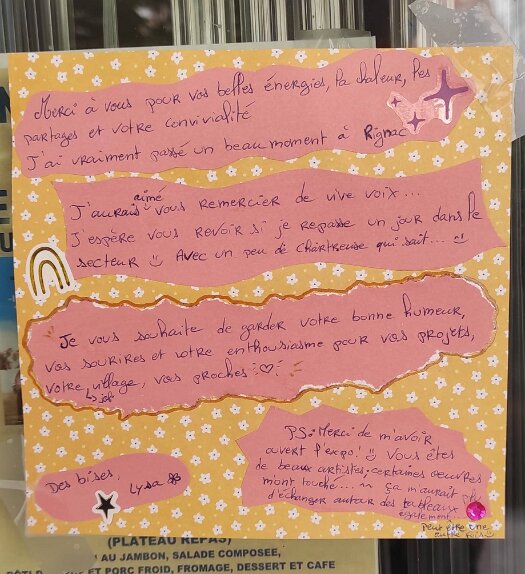 Merci à vous pour vos belles énergies, la chaleur, les
partages et votre convivialité
J'ai vraiment passé un beau moment à Rignac
J'aurais aimé vous remercier de vive voix...
J'espère vous revoir si je repasse un jour dans le
secteur ☺ Avec un peu de Chartreuse qui sait... ☺
Je vous souhaite de garder votre bonne humeur,
vos sourires et votre enthousiasme pour vos projets,
votre village, vos proches ♡
PS: Merci de m'avoir
ouvert l'expo! ☺ Vous êtes
de beaux artistes, certaines œuvres
m'ont touchée... ça m'aurait plu
d'échanger autour des tableaux
également.
Peut être une
autre fois ☺
Des bises,
Lysa
(PLATEAU REPAS)
AU JAMBON, SALADE COMPOSEE,
ET PORC FROID, FROMAGE, DESSERT ET CAFE